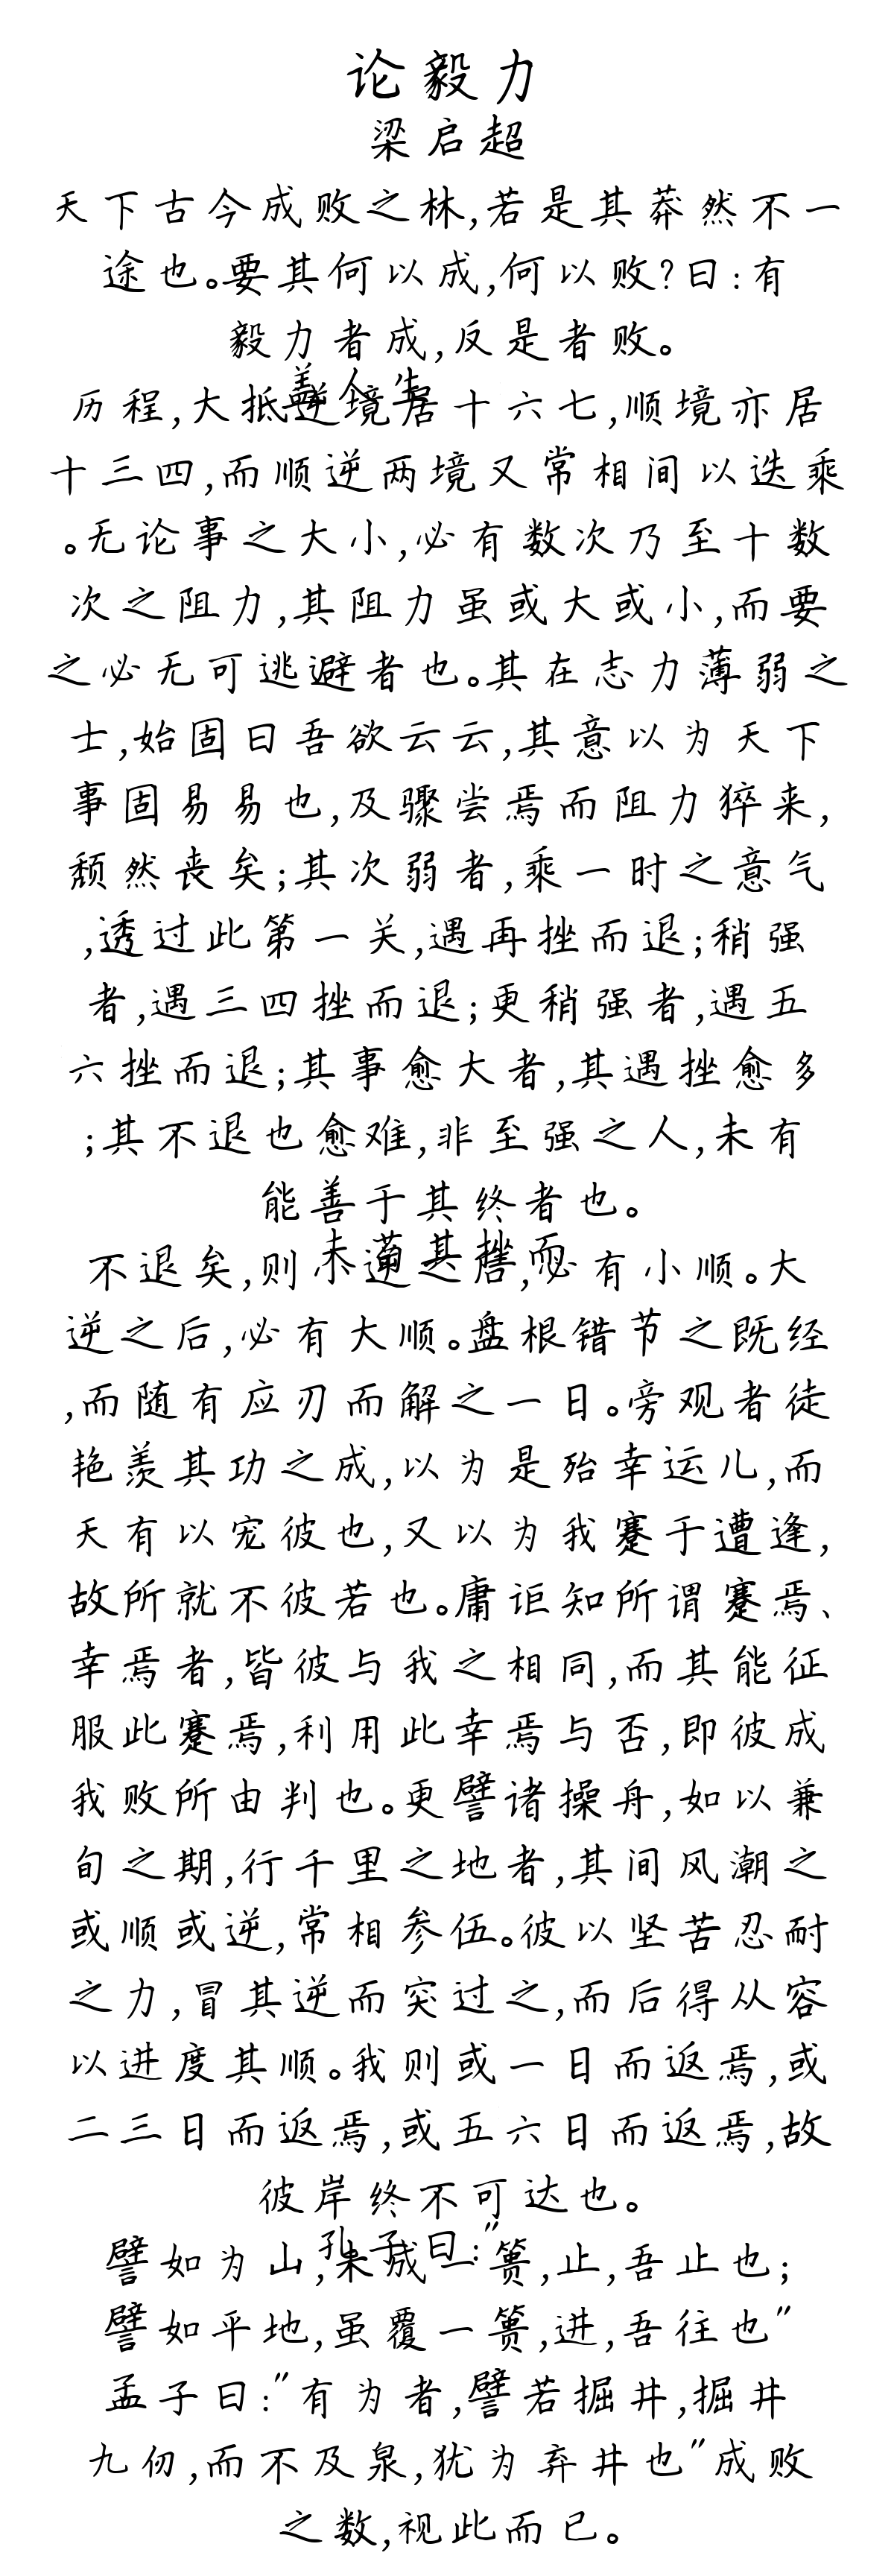 论毅力
梁启超
天下古今成败之林,若是其莽然不一
途也。要其何以成,何以败?曰:有
毅力者成,反是者败。
盖人生
历程,大抵逆境居十六七,顺境亦居
十三四,而顺逆两境又常相间以迭乘
。无论事之大小,必有数次乃至十数
次之阻力,其阻力虽或大或小,而要
之必无可逃避者也。其在志力薄弱之
士,始固曰吾欲云云,其意以为天下
事固易易也,及骤尝焉而阻力猝来,
颓然丧矣;其次弱者,乘一时之意气
,透过此第一关,遇再挫而退;稍强
者,遇三四挫而退;更稍强者,遇五
六挫而退;其事愈大者,其遇挫愈多
;其不退也愈难,非至强之人,未有
能善于其终者也。
夫苟其挫而
不退矣,则小逆之后,必有小顺。大
逆之后,必有大顺。盘根错节之既经
,而随有应刃而解之一日。旁观者徒
艳羡其功之成,以为是殆幸运儿,而
天有以宠彼也,又以为我蹇于遭逢,
故所就不彼若也。庸讵知所谓蹇焉、
幸焉者,皆彼与我之相同,而其能征
服此蹇焉,利用此幸焉与否,即彼成
我败所由判也。更譬诸操舟,如以兼
旬之期,行千里之地者,其间风潮之
或顺或逆,常相参伍。彼以坚苦忍耐
之力,冒其逆而突过之,而后得从容
以进度其顺。我则或一日而返焉,或
二三日而返焉,或五六日而返焉,故
彼岸终不可达也。
孔子曰:"
譬如为山,未成一篑,止,吾止也;
譬如平地,虽覆一篑,进,吾往也"
孟子曰:"有为者,譬若掘井,掘井
九仞,而不及泉,犹为弃井也"成败
之数,视此而已。